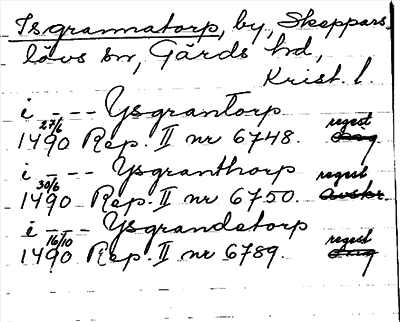 Isgrannatorp, by, Skeppars-
lövs sn, Gärds hd,
Krist. l.
i --- Ysgrantorp
1490 27/6 Rep. II nr 6748. regest
i --- Ysgranthorp
1490 30/6 Rep. II nr 6750. regest avskr.
i --- Ysgrandstorp
1490 16/10 Rep. II nr 6789. regest